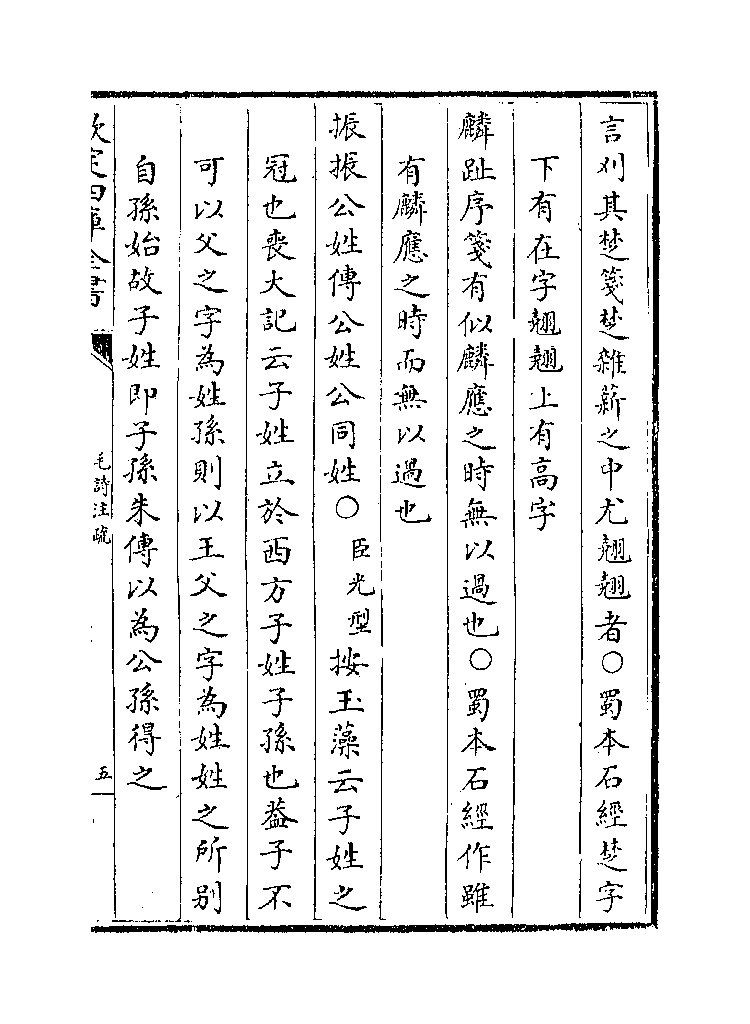 言刈其楚箋楚雜薪之中尤翹翹者○蜀本石經楚字
下有在字翹翹上有高字
麟趾序箋有似麟應之時無以過也○蜀本石經作雖
有麟應之時而無以過也
振振公姓傳公姓公同姓○臣光型按玉藻云子姓之
冠也喪大記云子姓立於西方子姓子孫也葢子不
可以父之字為姓孫則以王父之字為姓姓之所别
自孫始故子姓即子孫朱傳以為公孫得之
欽定四庫全書
毛詩注疏
五